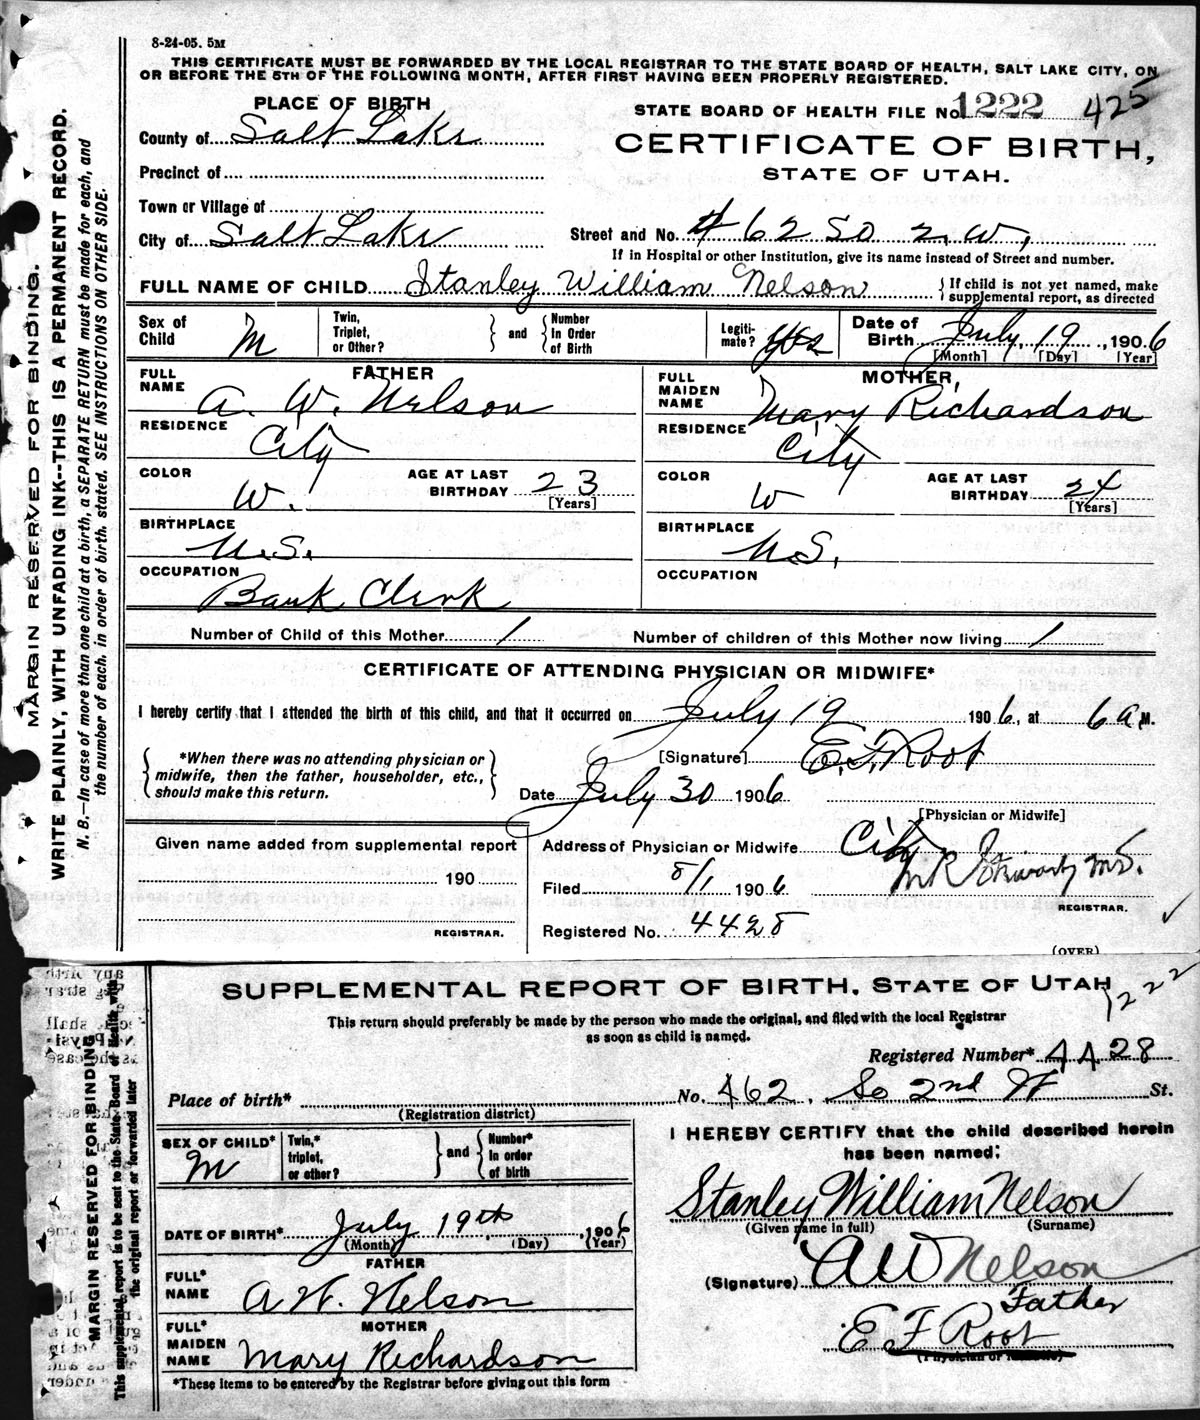 8-24-05. 5M
THIS CERTIFICATE MUST BE FORWARDED BY THE LOCAL REGISTRAR TO THE STATE BOARD OF HEALTH, SALT LAKE CITY, ON
OR BEFORE THE 5TH OF THE FOLLOWING MONTH, AFTER FIRST HAVING BEEN PROPERLY REGISTERED.
PLACE OF BIRTH
STATE BOARD OF HEALTH FILE No. 1222 425
County of Salt Lake
CERTIFICATE OF BIRTH,
STATE OF UTAH.
Precinct of
Town or Village of
City of Salt Lake
Street and No. 462 So 2. W.
If in Hospital or other Institution, give its name instead of Street and number.
FULL NAME OF CHILD Stanley William Nelson
If child is not yet named, make
supplemental report, as directed
Sex of
Child M
Twin,
Triplet,
or Other?
and
Number
In Order
of Birth
Legiti-
mate? yes
Date of
Birth July, 19, 1906
[Month] [Day] [Year]
FATHER
FULL
NAME A. W. Nelson
RESIDENCE City
COLOR W.
AGE AT LAST
BIRTHDAY 23
[Years]
BIRTHPLACE U.S.
OCCUPATION Bank Clerk
MOTHER,
FULL
MAIDEN
NAME Mary Richardson
RESIDENCE City
COLOR W
AGE AT LAST
BIRTHDAY 24
[Years]
BIRTHPLACE U.S.
OCCUPATION
Number of Child of this Mother 1
Number of children of this Mother now living 1
CERTIFICATE OF ATTENDING PHYSICIAN OR MIDWIFE*
I hereby certify that I attended the birth of this child, and that it occurred on July 19 1906, at 6 a.M.
*When there was no attending physician or
midwife, then the father, householder, etc.,
should make this return.
[Signature] E. F. Root
Date July 30 1906
[Physician or Midwife]
Given name added from supplemental report
190
REGISTRAR.
Address of Physician or Midwife City
Filed 8/1 1906
M.D.
REGISTRAR.
Registered No. 4428
(OVER)
MARGIN RESERVED FOR BINDING.
WRITE PLAINLY, WITH UNFADING INK--THIS IS A PERMANENT RECORD.
N. B.—In case of more than one child at a birth, a SEPARATE RETURN must be made for each, and
the number of each, in order of birth, stated. SEE INSTRUCTIONS ON OTHER SIDE.
SUPPLEMENTAL REPORT OF BIRTH, STATE OF UTAH
1222
This return should preferably be made by the person who made the original, and filed with the local Registrar
as soon as child is named.
Registered Number* 4428
Place of birth*
(Registration district)
No. 462. So 2nd W St.
SEX OF CHILD* M
Twin,*
triplet,
or other?
and
Number*
In order
of birth
I HEREBY CERTIFY that the child described herein
has been named:
Stanley William Nelson
(Given name in full) (Surname)
DATE OF BIRTH* July 19th, 1906
(Month) (Day) (Year)
FATHER
FULL*
NAME A W. Nelson
(Signature) AW Nelson
Father
E F Root
(Physician or Midwife)
MOTHER
FULL*
MAIDEN
NAME Mary Richardson
*These items to be entered by the Registrar before giving out this form
MARGIN RESERVED FOR BINDING
This supplemental report is to be sent to the State Board of Health with
the original report or forwarded later